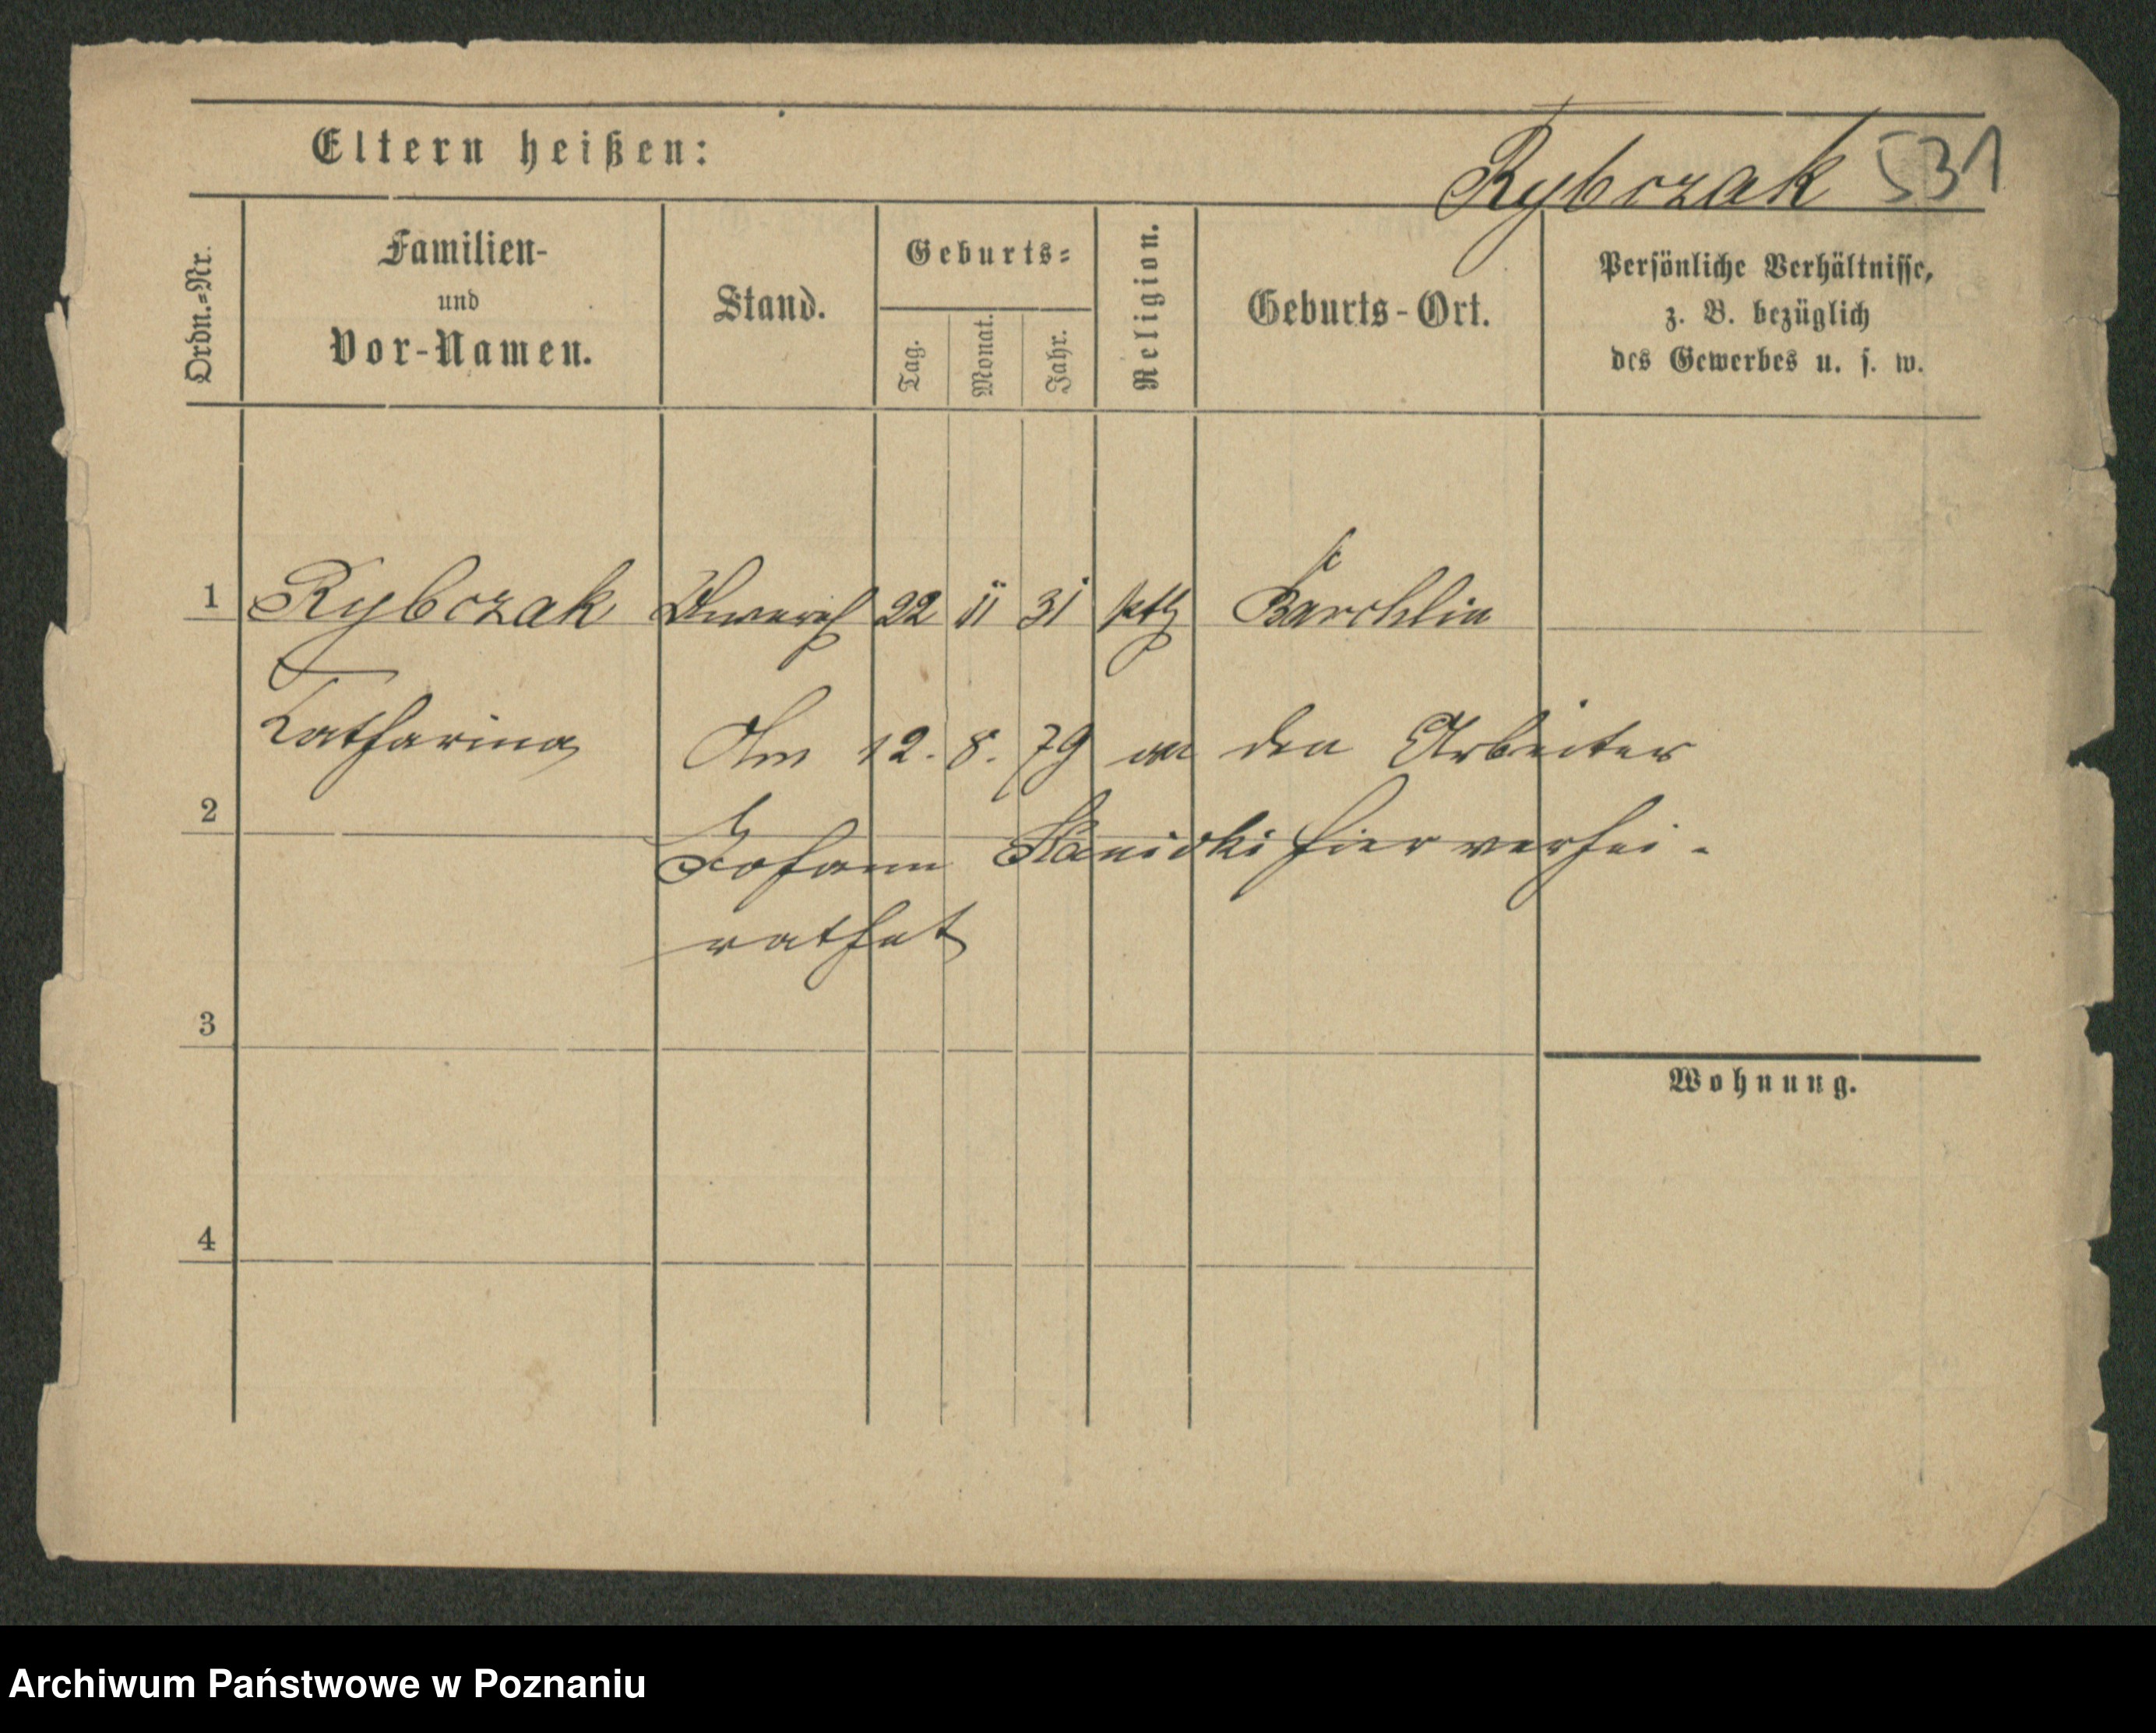 Eltern heißen:
Rybczak 531
Ordn.=Nr.
Familien-
und
Vor-Namen.
Stand.
Geburts=
Tag.
Monat.
Jahr.
Religion.
Geburts-Ort.
Persönliche Verhältnisse,
z. B. bezüglich
des Gewerbes u. s. w.
1 Rybczak 22 11 31 kth Barchlin
Katharina
Am 12. 8. 79 an den Arbeiter
2
Johann hier verhei-
rathet
3
Wohnung.
4
Archiwum Państwowe w Poznaniu